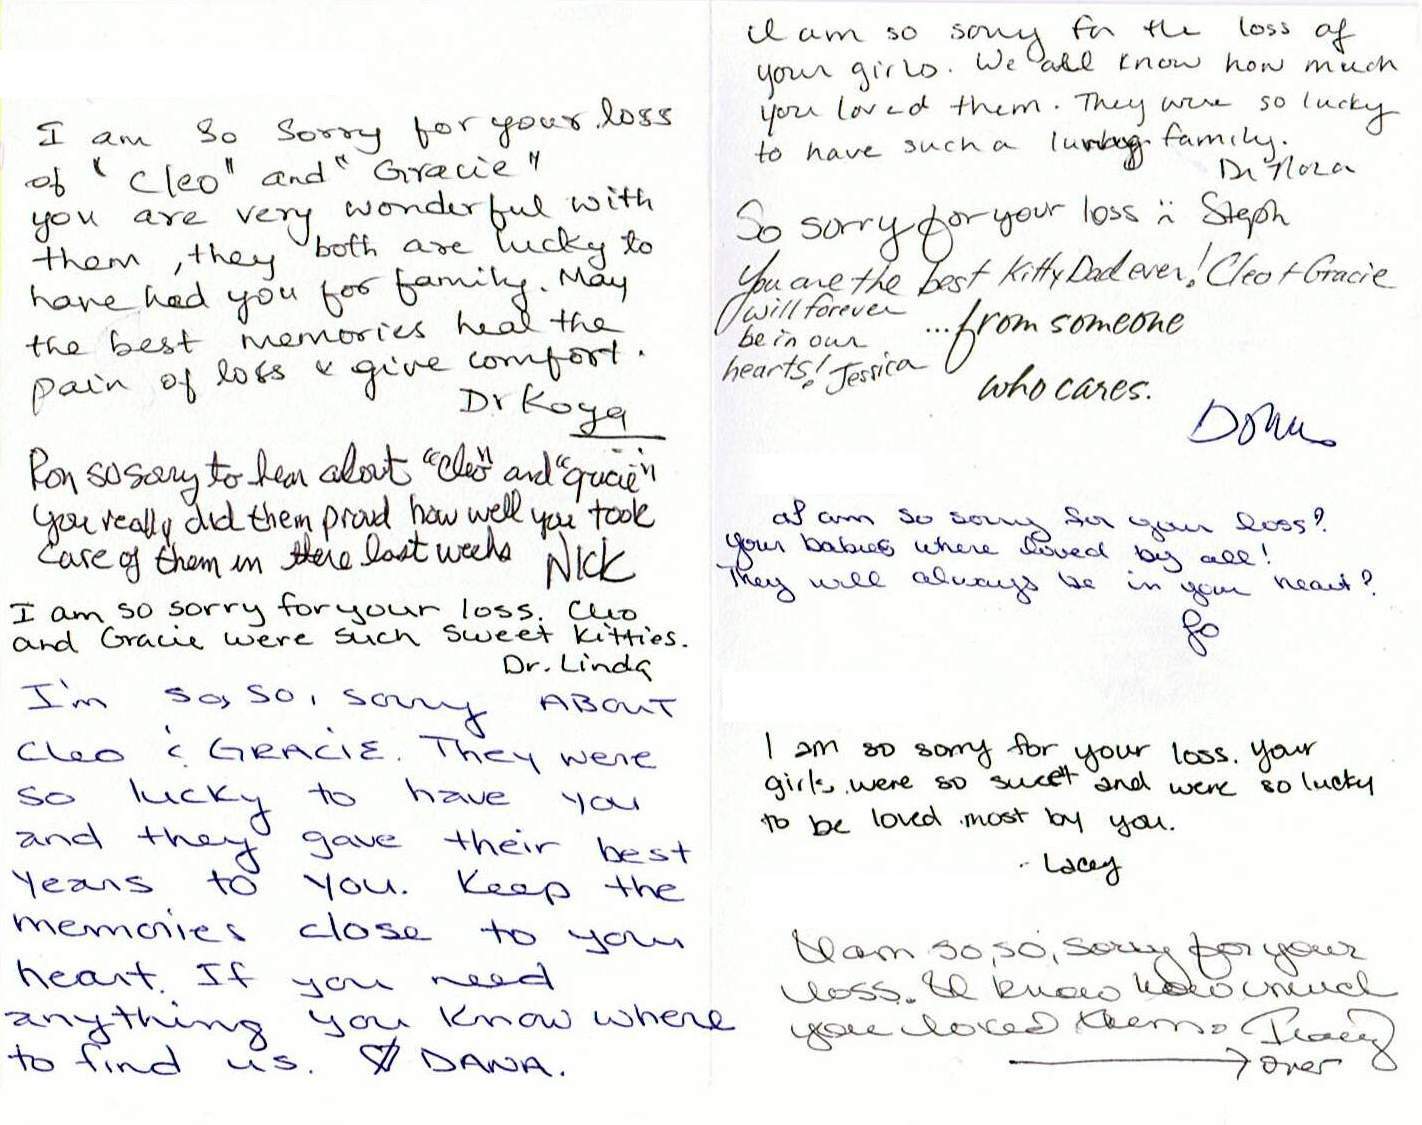 I am so sorry for your loss
of "Cleo" and "Gracie"
you are very wonderful with
them, they both are lucky to
have had you for family. May
the best memories heal the
pain of loss & give comfort.
Dr Koya
Ron so sorry to hear about "Cleo" and "gracie"
You really did them proud how well you took
care of them in there last weeks Nick
I am so sorry for your loss. Cleo
and Gracie were such sweet kitties.
Dr. Linda
I'm so, so, sorry ABOUT
Cleo & GRACIE. They were
so lucky to have you
and they gave their best
years to you. Keep the
memories close to your
heart. If you need
anything you know where
to find us. ♡ DANA.
I am so sorry for the loss of
your girls. We all know how much
you loved them. They were so lucky
to have such a loving family.
Dr Nora
So sorry for your loss :( Steph
You are the best Kitty Dad ever! Cleo + Gracie
will forever
be in our
hearts! Jessica
...from someone
who cares.
Donna
I am so sorry for your loss?
Your babies where loved by all!
They will always be in your heart?
Jo
I am so sorry for your loss. Your
girls were so sweet and were so lucky
to be loved most by you.
- Lacey
I am so, so, sorry for your
loss. I know how much
you loved them. Tracy
→ over